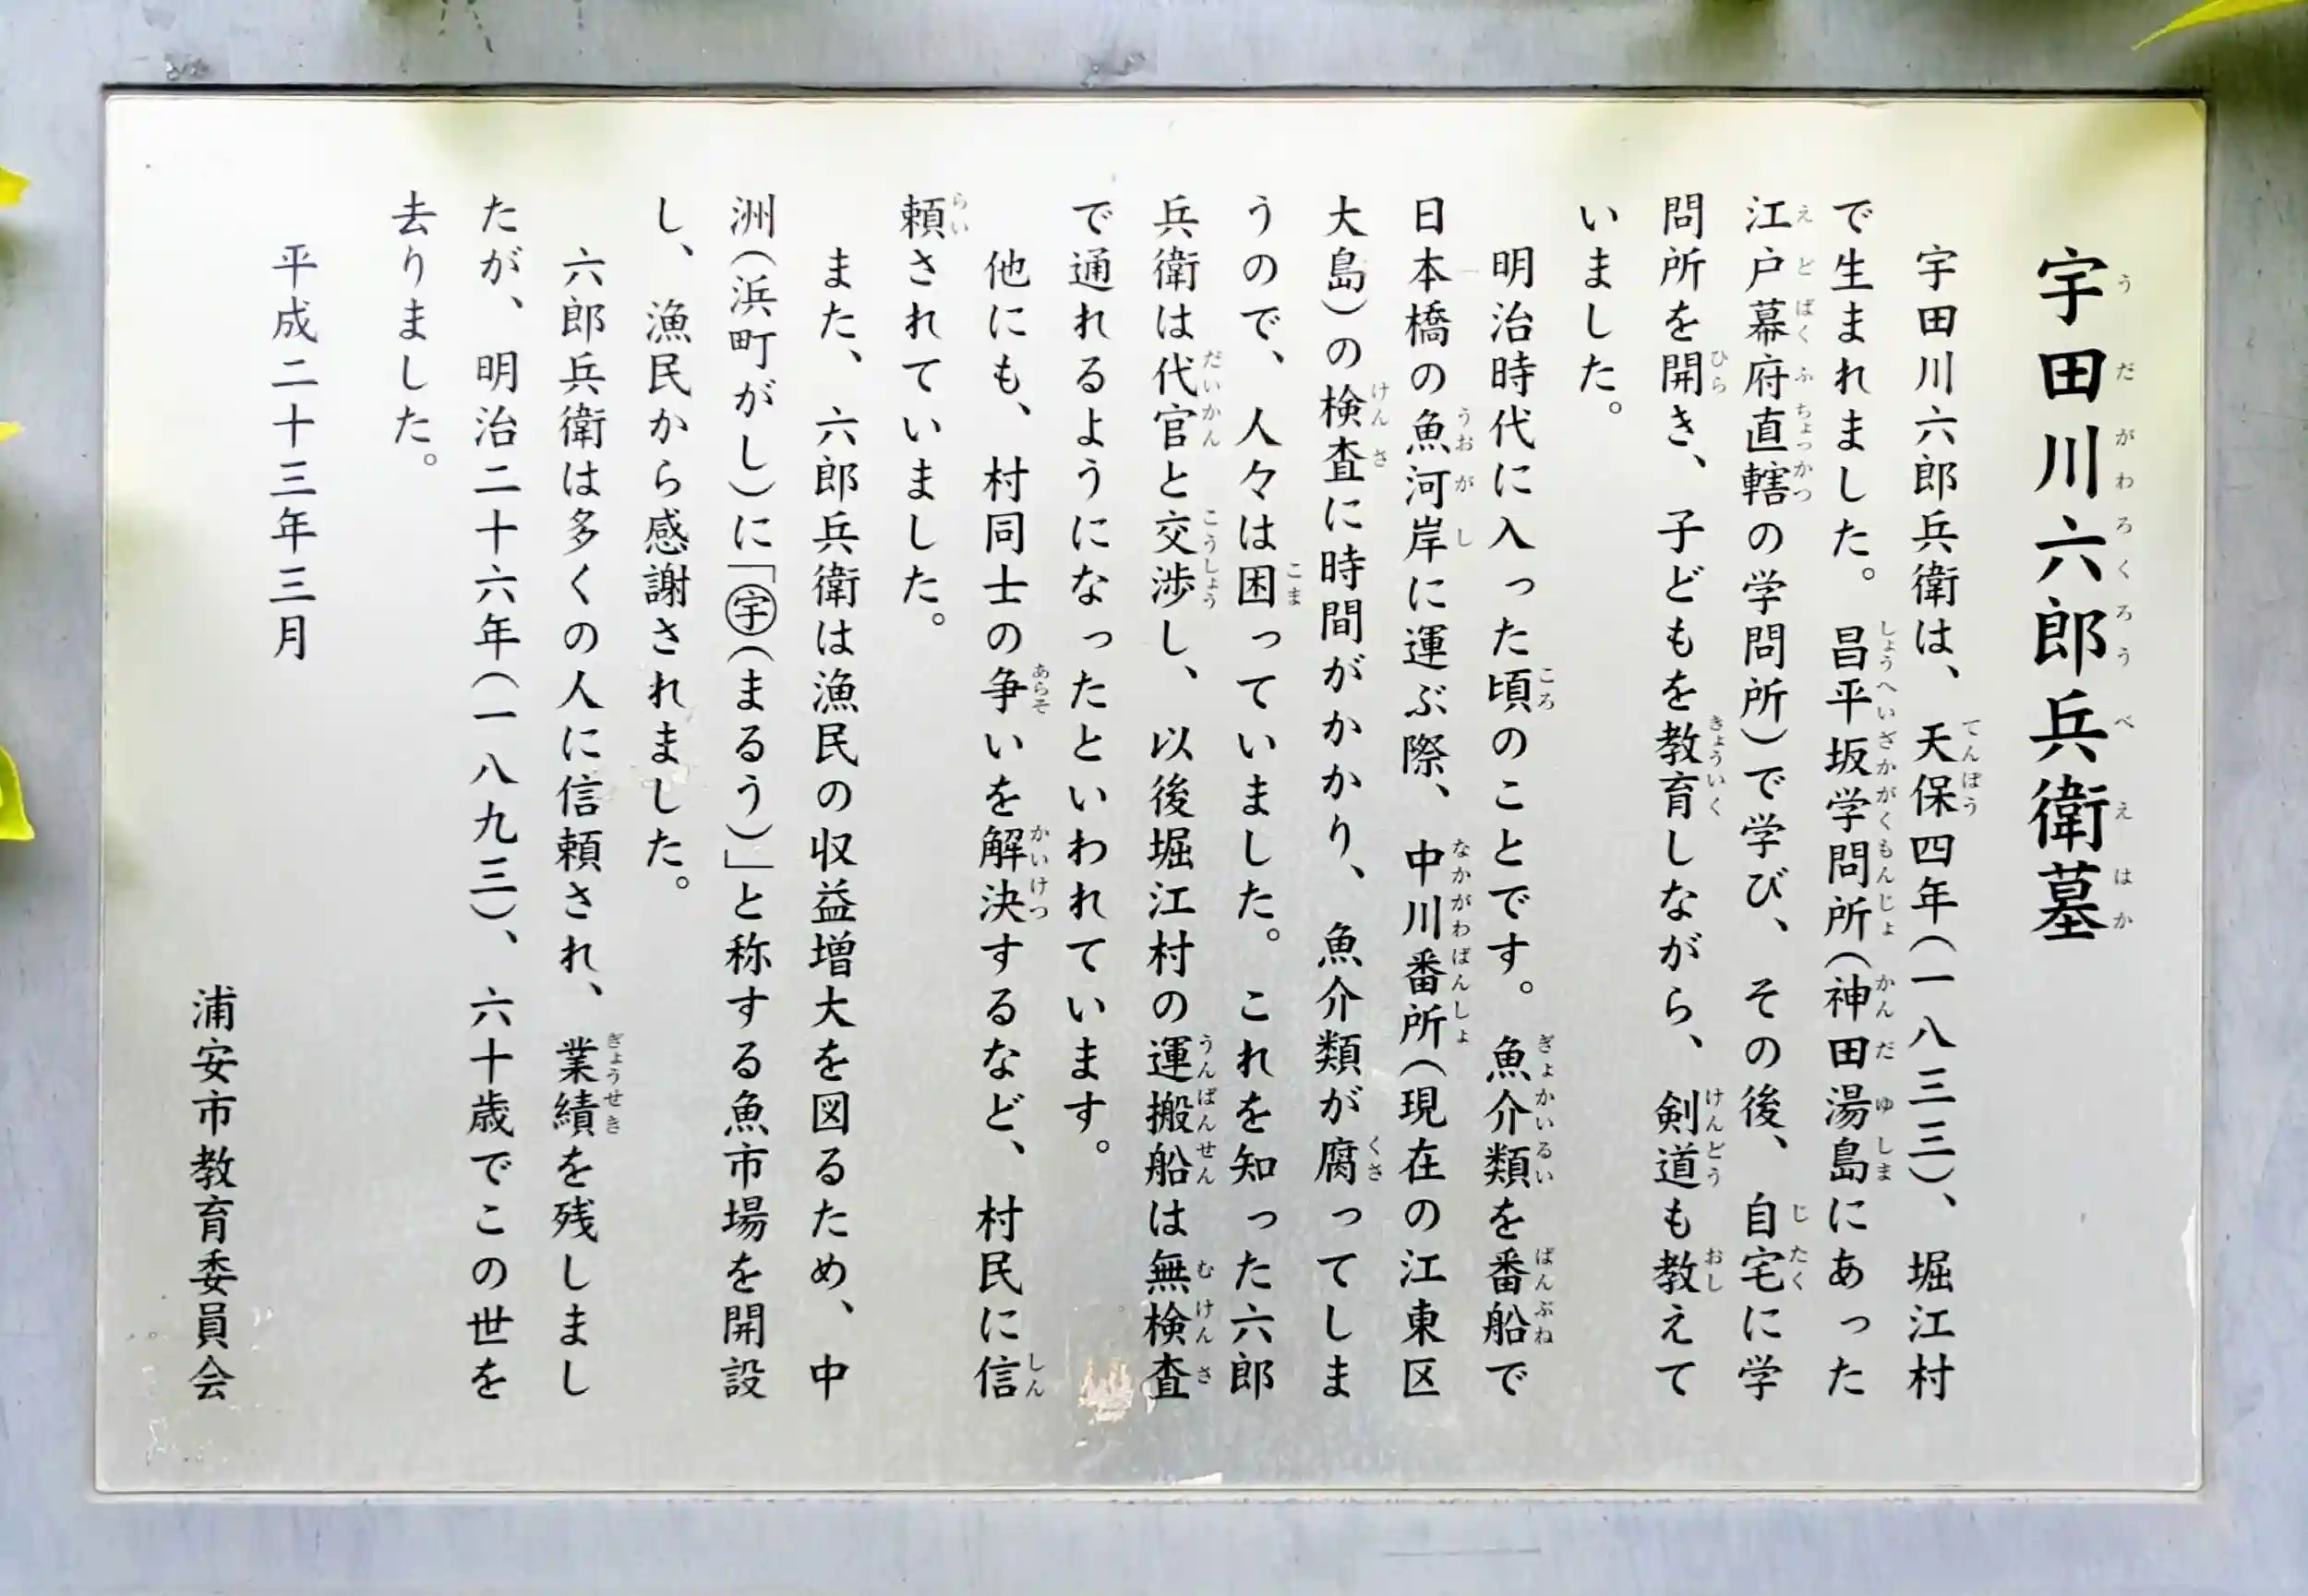 宇田川六郎兵衛墓
宇田川六郎兵衛は、天保四年(一八三三)、堀江村
で生まれました。昌平坂学問所(神田湯島にあった
江戸幕府直轄の学問所)で学び、その後、自宅に学
問所を開き、子どもを教育しながら、剣道も教えて
いました。
明治時代に入った頃のことです。魚介類を番船で
日本橋の魚河岸に運ぶ際、中川番所(現在の江東区
大島)の検査に時間がかかり、魚介類が腐ってしま
うので、人々は困っていました。これを知った六郎
兵衛は代官と交渉し、以後堀江村の運搬船は無検査
で通れるようになったといわれています。
他にも、村同士の争いを解決するなど、村民に信
頼されていました。
また、六郎兵衛は漁民の収益増大を図るため、中
洲(浜町がし)に「㊫(まるう)」と称する魚市場を開設
し、漁民から感謝されました。
六郎兵衛は多くの人に信頼され、業績を残しまし
たが、明治二十六年(一八九三)、六十歳でこの世を
去りました。
平成二十三年三月
浦安市教育委員会